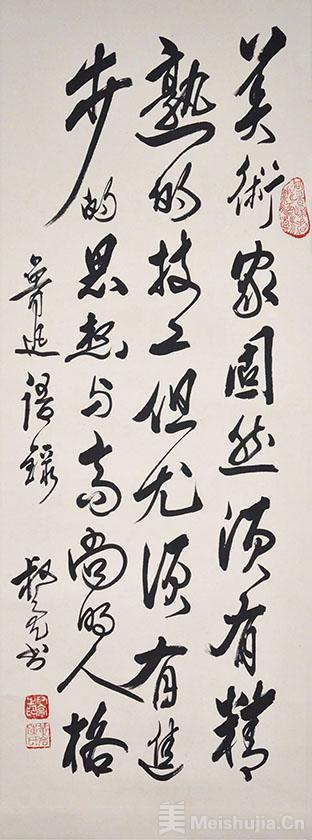 美術家固然須有精
熟的技工但尤須有進
步的思想与高尚的人格
魯迅語錄
叔亮书
美 Meishujia.Cn